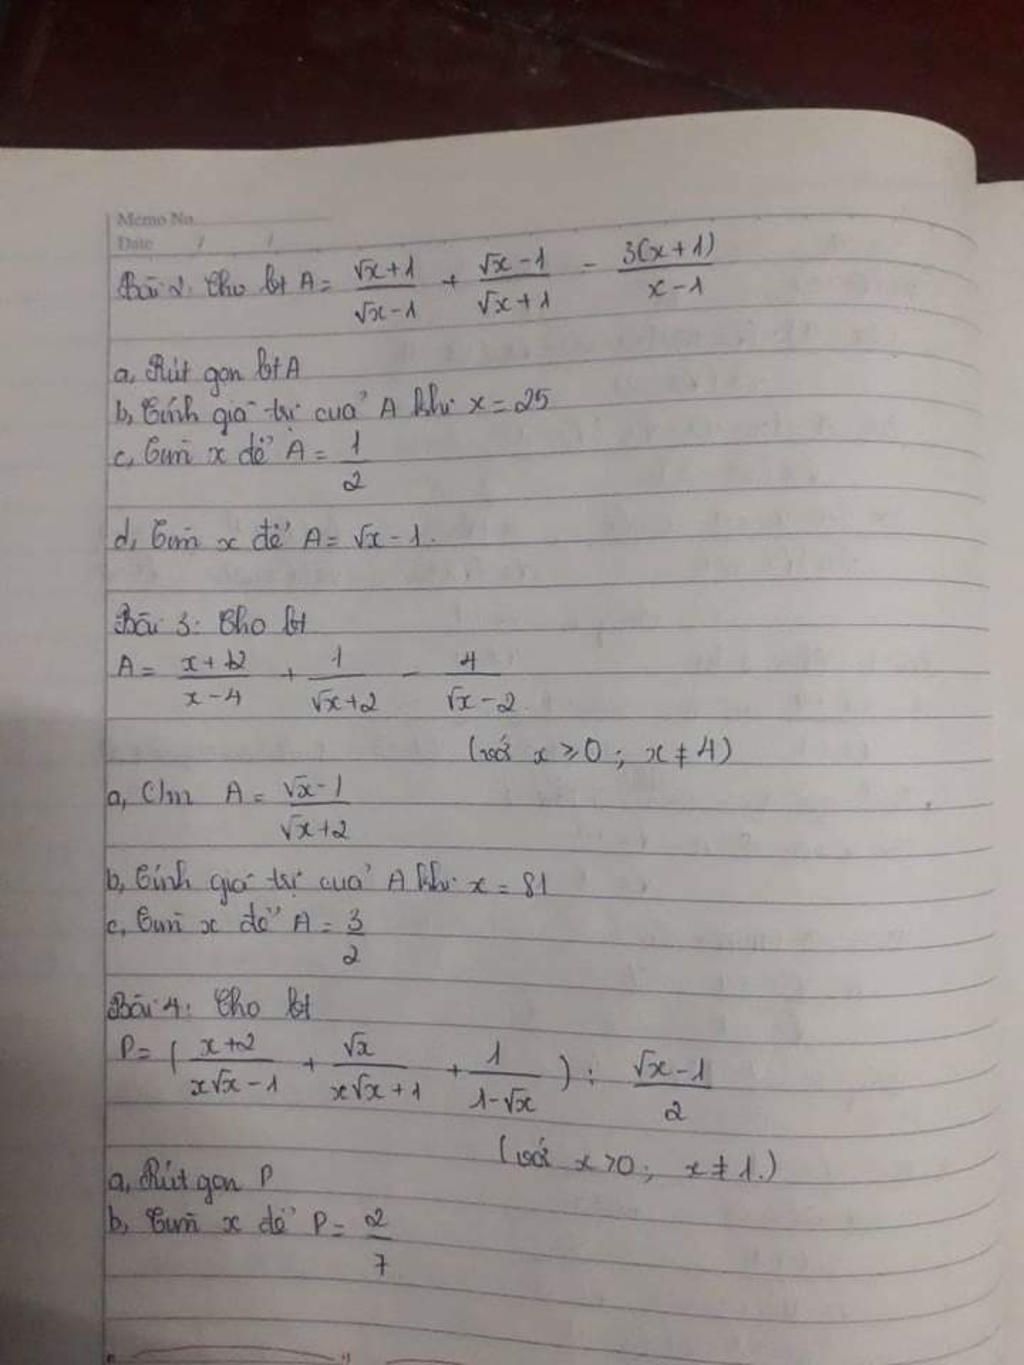 Memo No.
Date / /
Bài 2: Cho bt A = (√x + 1)/(√x - 1) + (√x - 1)/(√x + 1) - 3(x + 1)/(x - 1)
a, Rút gọn bt A
b, Tính giá trị của A khi x = 25
c, Tìm x để A = 1/2
d, Tìm x để A = √x - 1.
Bài 3: Cho bt
A = (x + 12)/(x - 4) + 1/(√x + 2) - 4/(√x - 2)
(với x ≥ 0 ; x ≠ 4)
a, C/m A = (√x - 1)/(√x + 2)
b, Tính giá trị của A khi x = 81
c, Tìm x để A = 3/2
Bài 4: Cho bt
P = ( (x + 2)/(x√x - 1) + √x/(x√x + 1) + 1/(1 - √x) ) : (√x - 1)/2
(với x > 0 ; x ≠ 1.)
a, Rút gọn P
b, Tìm x để P = 2/7